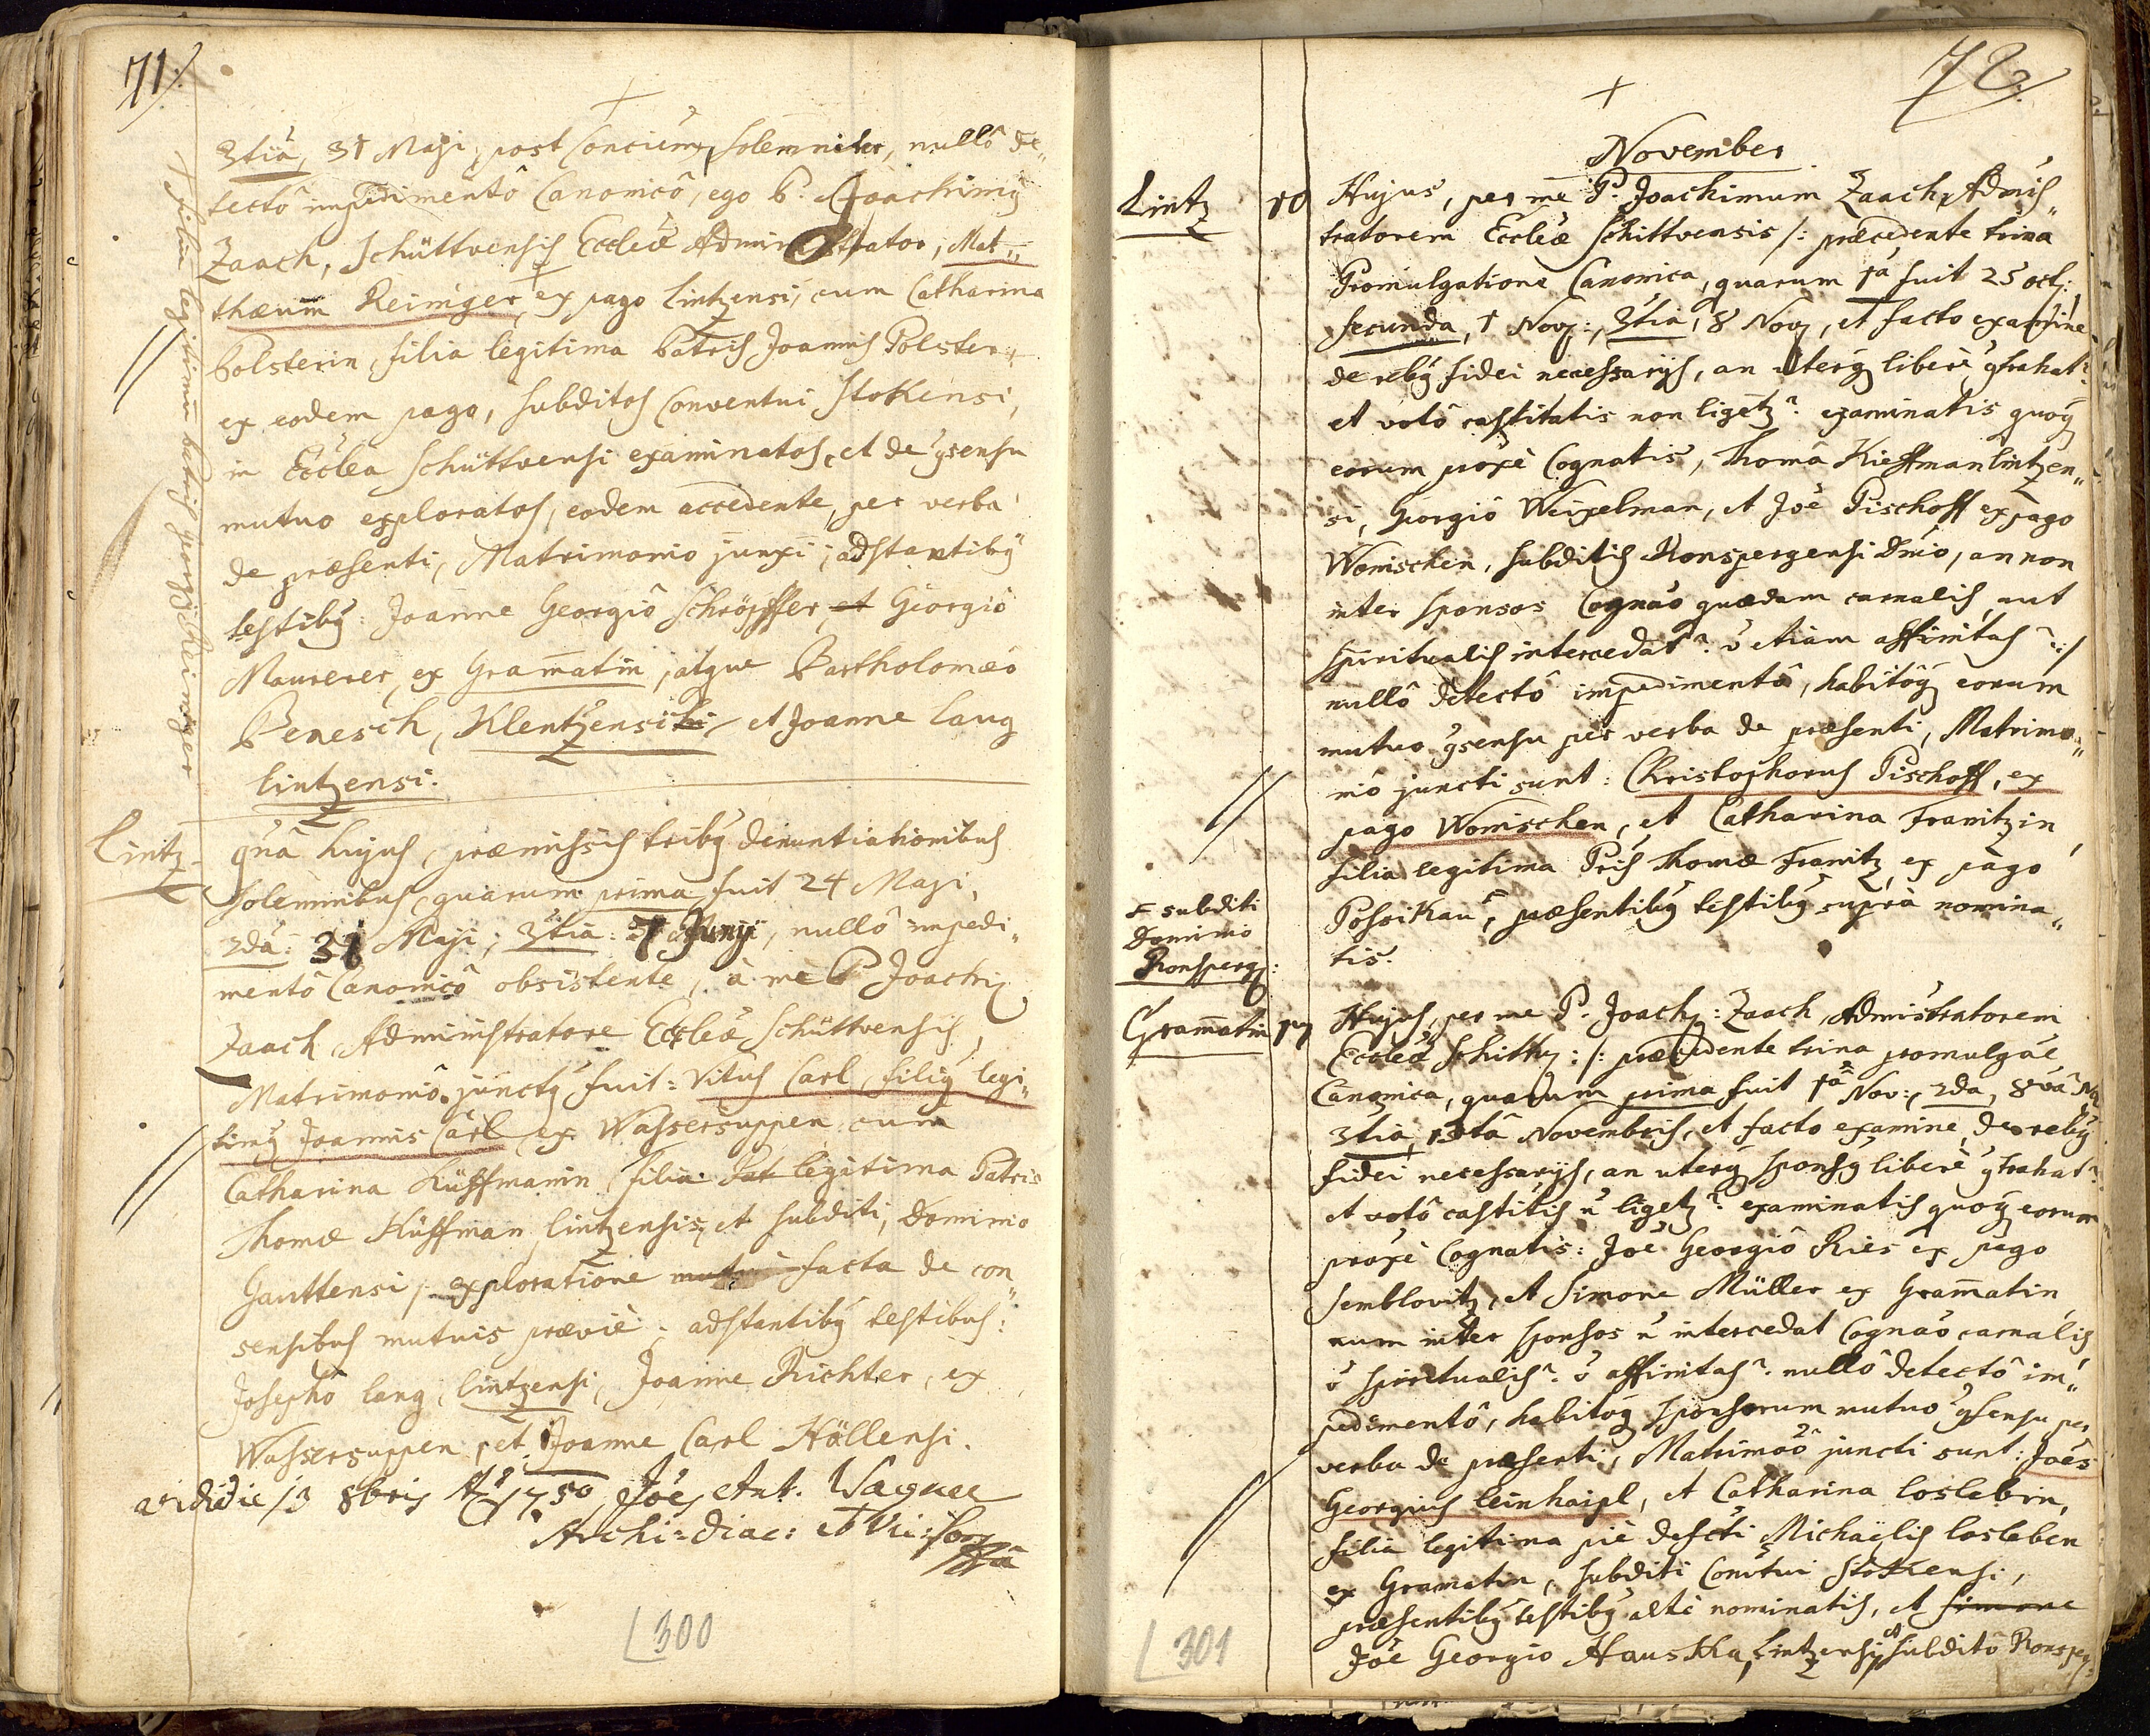 71.
3tia, 31 Maji, post Concium, Solemniter, nullô de„
tectô impedimentô Canonicô, ego P. Joachimg
Zaach, Schüttvensis Eccleæ Administrator, Mat„
thæum Reiniger + ex pago Lintzensi, cum Catharina
Polsterin, filia legitima Patris Joannis Polster,
ex eodem pago, subditos Conventui Stokensi,
in Ecclea Schüttvensi examinatos, et de gsensu
mutuo exploratos, eodem accedente, per verba
de præsenti, Matrimonio junxi; adstantibg
testibg: Joanne Georgiô Schröpffer, et Georgiô
Maurerer, ex Gramatin, atque Bartholomæo
Benesch, Klentzensi, et Joanne Lang
Lintzensi.
+ filiu legitimu Patris Georgÿ Reiniger
Lintz
gnâ hujus, præmissis tribg denuntiationibus
solemnibus, quarum prima fuit 24 Maji,
2da: 31 Maji; 3tia: 7 Junij, nullô impedi„
mentô Canonicô obsistente, à me P Joachi
Zaach Administratore Eccleæ Schüttvensis,
Matrimonio junctg fuit: Vitus Carl, filig legi„
timg Joannis Carl ex Wassersuppen cum
Catharina Küffmanin, filia Pat legitima Patris
Thomæ Küffman Lintzensis, et subditi, Domino
Gauttensi, exploratione facta de con„
sensibus mutuis præviè; adstantibg testibus:
Josephô Lang, Lintzensi, Joanne Richter, ex
Wassersuppen, et Joanne Carl Hällensi.
vidi die 13 8bris Ao 1750 Joës Ant. Wagner
Archi-diac: et Vic: for
300
72.
November
Lintz
10
Hujus, per me P. Joachimum Zaach, Admis„
tratorem Eccleæ Schittvensis /: præcedente trina
Promulgatione Canonica, quarum 1a fuit 25 oct:
secunda, 1 Nov:, 3tia, 8 Nov, et facto examine
de rebg fidei necessarijs, an uterq liberè gtrahat?
et votô castitatis non ligetz? examinatis quoq
eorum proxè Cognatis, Thomâ Kieffman Lintzen„
si, Georgiô Weixelman, et Joë Pischoff ex pago
Wonischen, subditis Ronspergensi Dnio, an non
inter sponsos Cognâo quædam carnalis, aut
Spiritualis intercedat? v etiam affinitas? :/
nullô detectô impedimentô, habitôq eorum
mutuo gsensu per verba de præsenti, Matrimo„
niô juncti sunt: Christophorus Pischoff, ex
pago Wonischen, et Catharina Franitzin,
filia legitima Pris Thomæ Franitz ex pago
Possikau +, præsentibg testibg suprà nomina„
tis.
+ subditi
Domino
Ronsperg:
Gramatin
17
Hujus, per me P. Joach: Zaach, Admistratorem
Eccleæ Schittv: /: præcedente trina promulgâe
Canonica, quarum prima fuit 1â Nov:, 2da, 8vâ Nov
3tia, 15tâ Novembris, et facto examine, de rebg
fidei necessarijs, an uterq sponsg liberè gtrahat?
et votô castitis n ligetz? examinatis quoq eorum
proxè Cognatis: Joë Georgiô Ries ex pago
Semblovitz, et Simone Müller ex Gramatin,
num inter sponsos n intercedat Cognâo carnalis
v spiritualis? v affinitas? nullô detectô im„
pedimentô, habitoq sponsorum mutuo gsensu per
verba de præsenti, Matrimôo juncti sunt: Joës
Georgius Leinhaipl, et Catharina Loslebin,
filia legitima piè defcti Michaëlis Losleben
ex Gramatin, subditi Convtui Stokensi,
præsentibg testibg alte nominatis, et Simone
Joë Georgio Hauskha, Lintzensi, et subditô Ronsper:
301